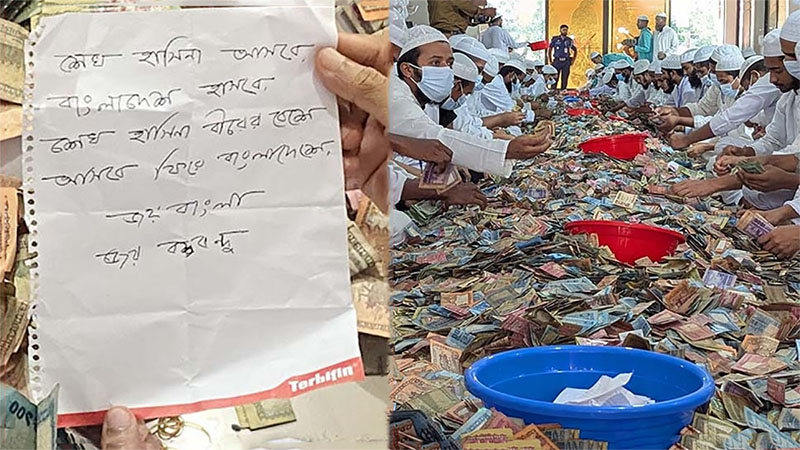 শেখ হাসিনা আসবে,
বাংলাদেশ হাসবে.
শেখ হাসিনা বীরের বেশে
আসবে ফিরে বাংলাদেশে.
জয় বাংলা
জয় বঙ্গবন্ধু
Terbifin